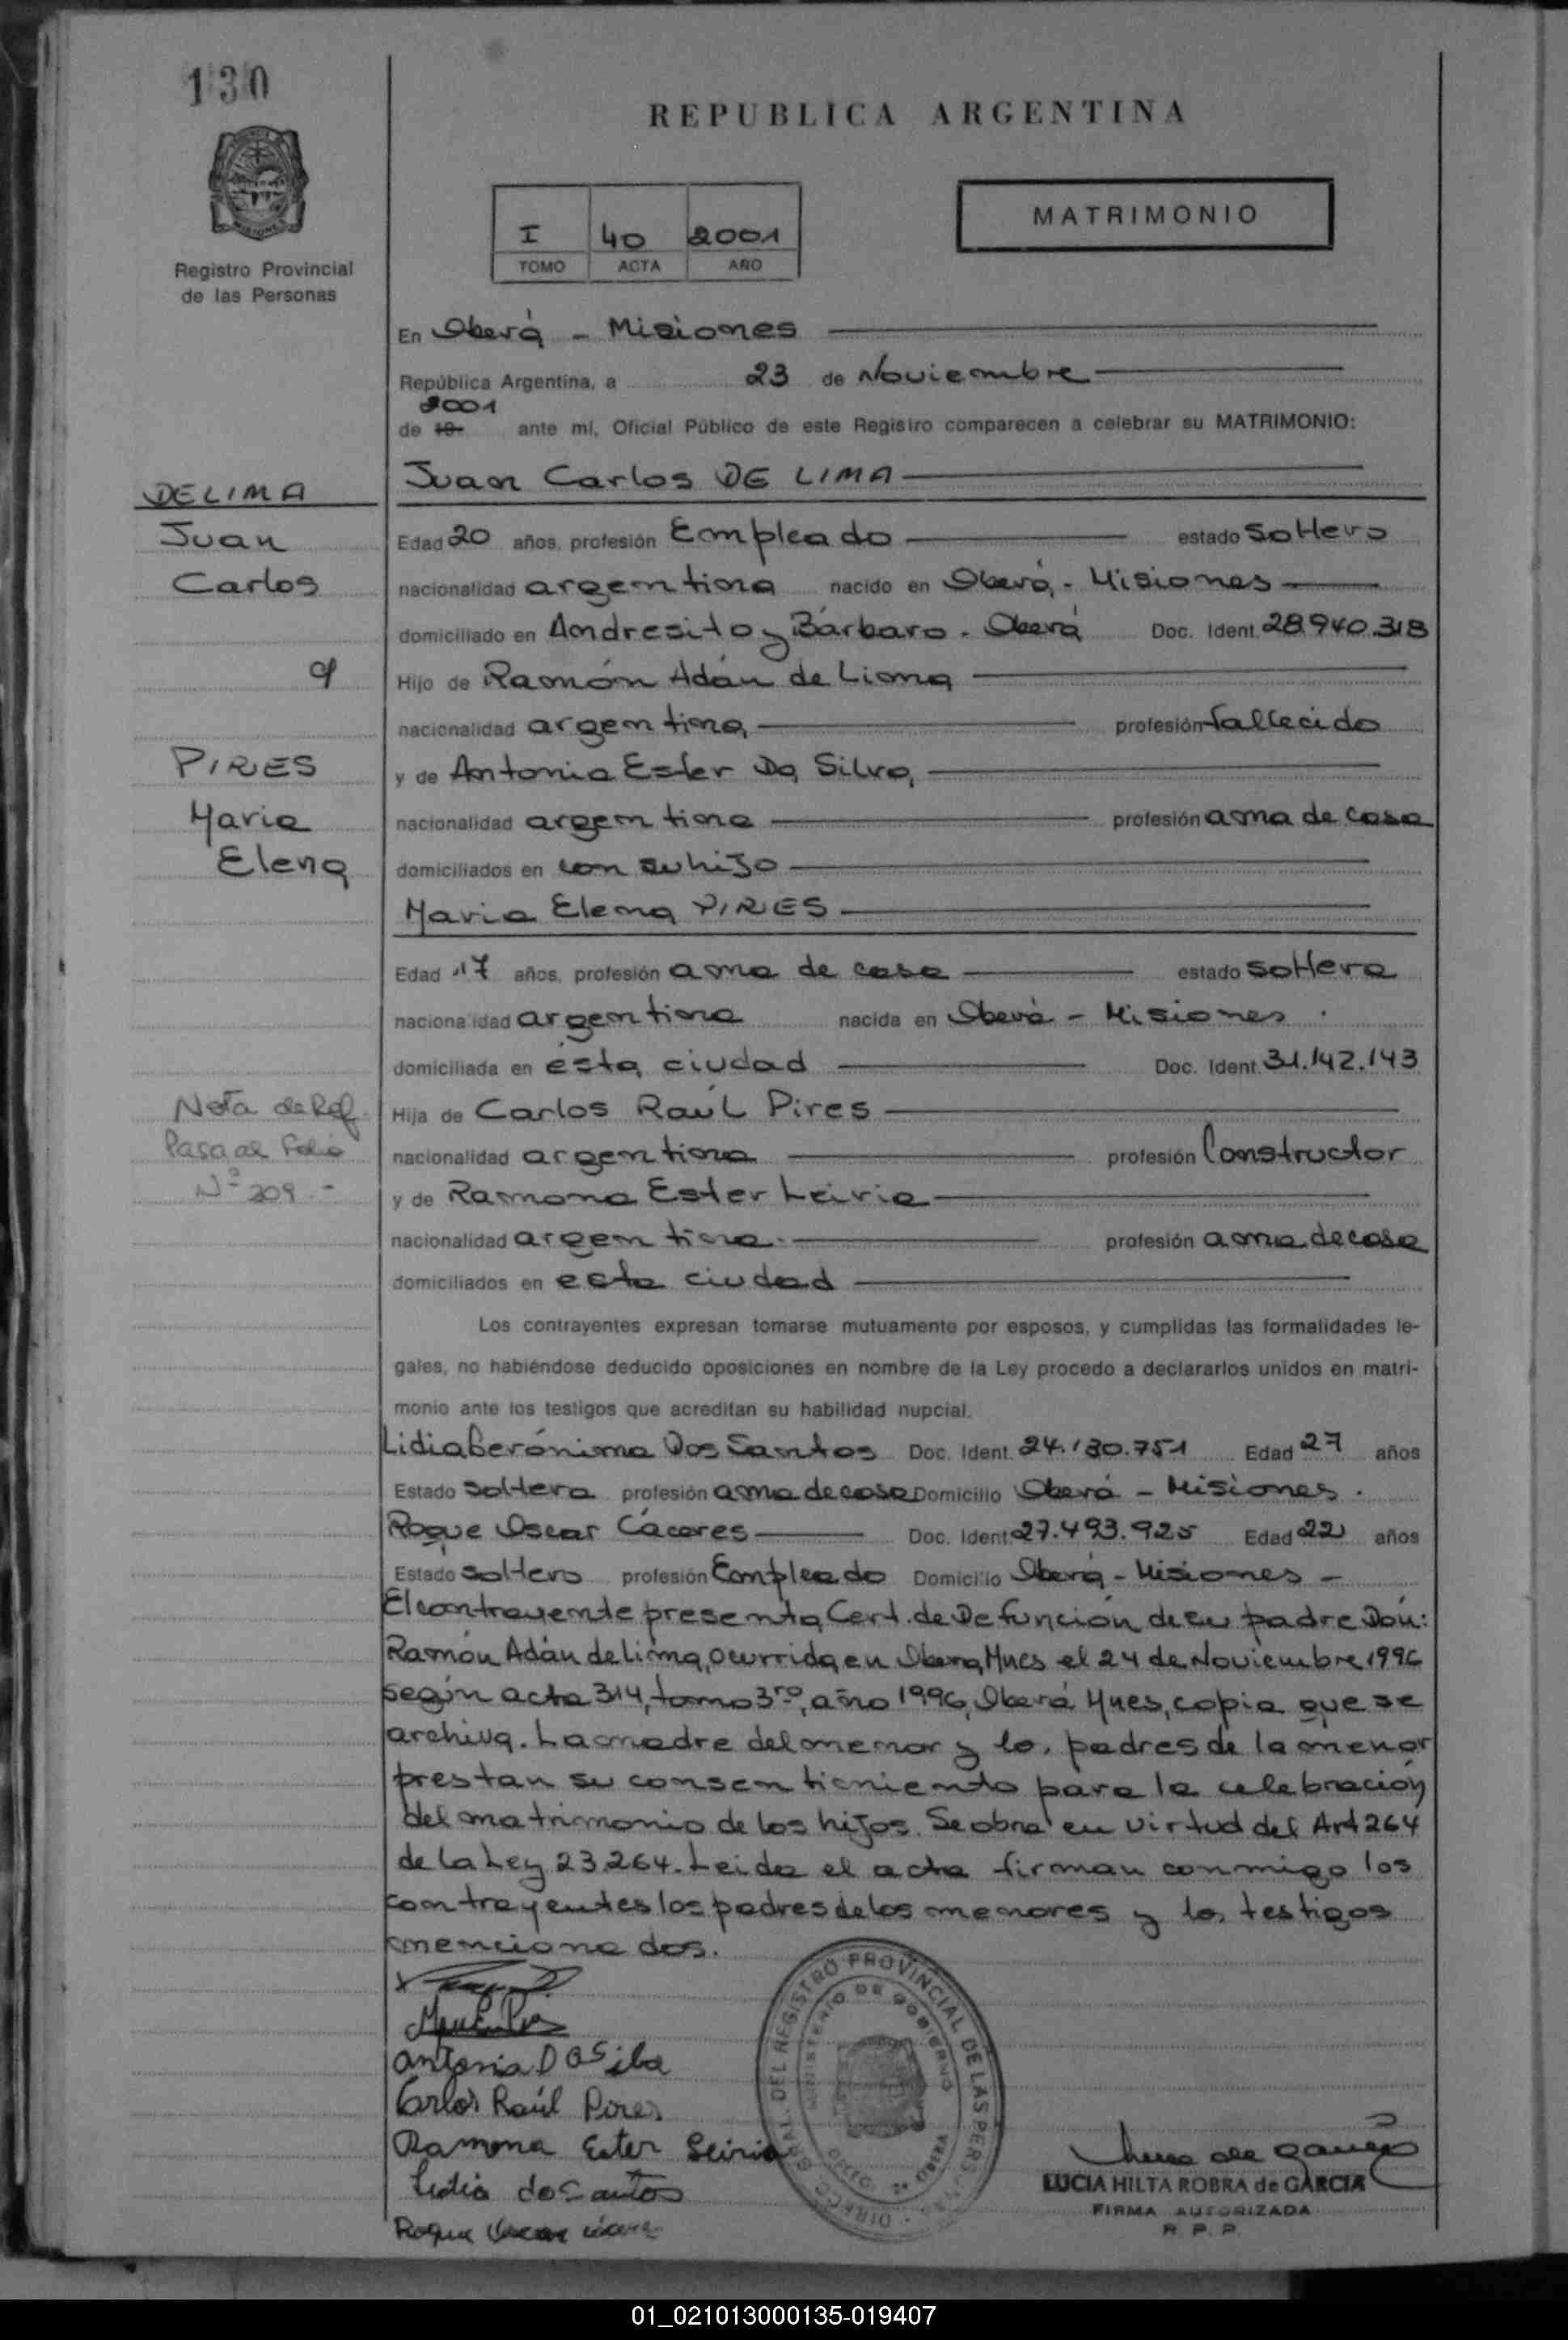 130
REPUBLICA ARGENTINA
I 40 2001
TOMO ACTA AÑO
MATRIMONIO
Registro Provincial
de las Personas
En Oberá - Misiones
República Argentina, a 23 de Noviembre
2001
de 19 ante mí, Oficial Público de este Registro comparecen a celebrar su MATRIMONIO:
Juan Carlos DE LIMA
DE LIMA
Juan
Carlos
Edad 20 años, profesión Empleado estado soltero
nacionalidad argentina nacido en Oberá - Misiones
domiciliado en Andresito y Bárbaro - Oberá Doc. Ident. 28.940.318
Hijo de Ramón Adán de Lima
nacionalidad argentina profesión fallecido
y de Antonia Ester Da Silva
nacionalidad argentina profesión ama de casa
domiciliados en con su hijo
PIRES
Maria
Elena
Maria Elena PIRES
Edad 17 años, profesión ama de casa estado soltera
nacionalidad argentina nacida en Oberá - Misiones
domiciliada en ésta ciudad Doc. Ident. 31.142.143
Hija de Carlos Raúl Pires
nacionalidad argentina profesión Constructor
y de Ramona Ester Leiria
nacionalidad argentina profesión ama de casa
domiciliados en esta ciudad
Nota de Ref.
Pasa al Folio
Nº 209.-
Los contrayentes expresan tomarse mutuamente por esposos, y cumplidas las formalidades le-
gales, no habiéndose deducido oposiciones en nombre de la Ley procedo a declararlos unidos en matri-
monio ante los testigos que acreditan su habilidad nupcial.
Lidia Gerónima Dos Santos Doc. Ident. 24.130.751 Edad 27 años
Estado soltera profesión ama de casa Domicilio Oberá - Misiones.
Roque Oscar Cáceres Doc. Ident. 27.493.925 Edad 22 años
Estado soltero profesión Empleado Domicilio Oberá - Misiones -
El contrayente presenta Cert. de Defunción de su padre Don:
Ramón Adán de Lima, ocurrida en Oberá, Mnes el 24 de Noviembre 1996
según acta 314, tomo 3ro, año 1996, Oberá Mnes, copia que se
archiva. La madre del menor y los padres de la menor
prestan su consentimiento para la celebración
del matrimonio de los hijos. Se obra en virtud del Art 264
de la Ley 23.264. Leida el acta firman conmigo los
contrayentes los padres de los menores y los testigos
mencionados.
Antonia DaSilba
Carlos Raúl Pires
Ramona Ester Leiria
Lidia dosantos
Roque Oscar
DIRECC. GRAL. DEL REGISTRO PROVINCIAL DE LAS PERS
MINISTERIO DE GOBIERNO
LUCIA HILTA ROBRA de GARCIA
FIRMA AUTORIZADA
R. P. P.
01_021013000135-019407